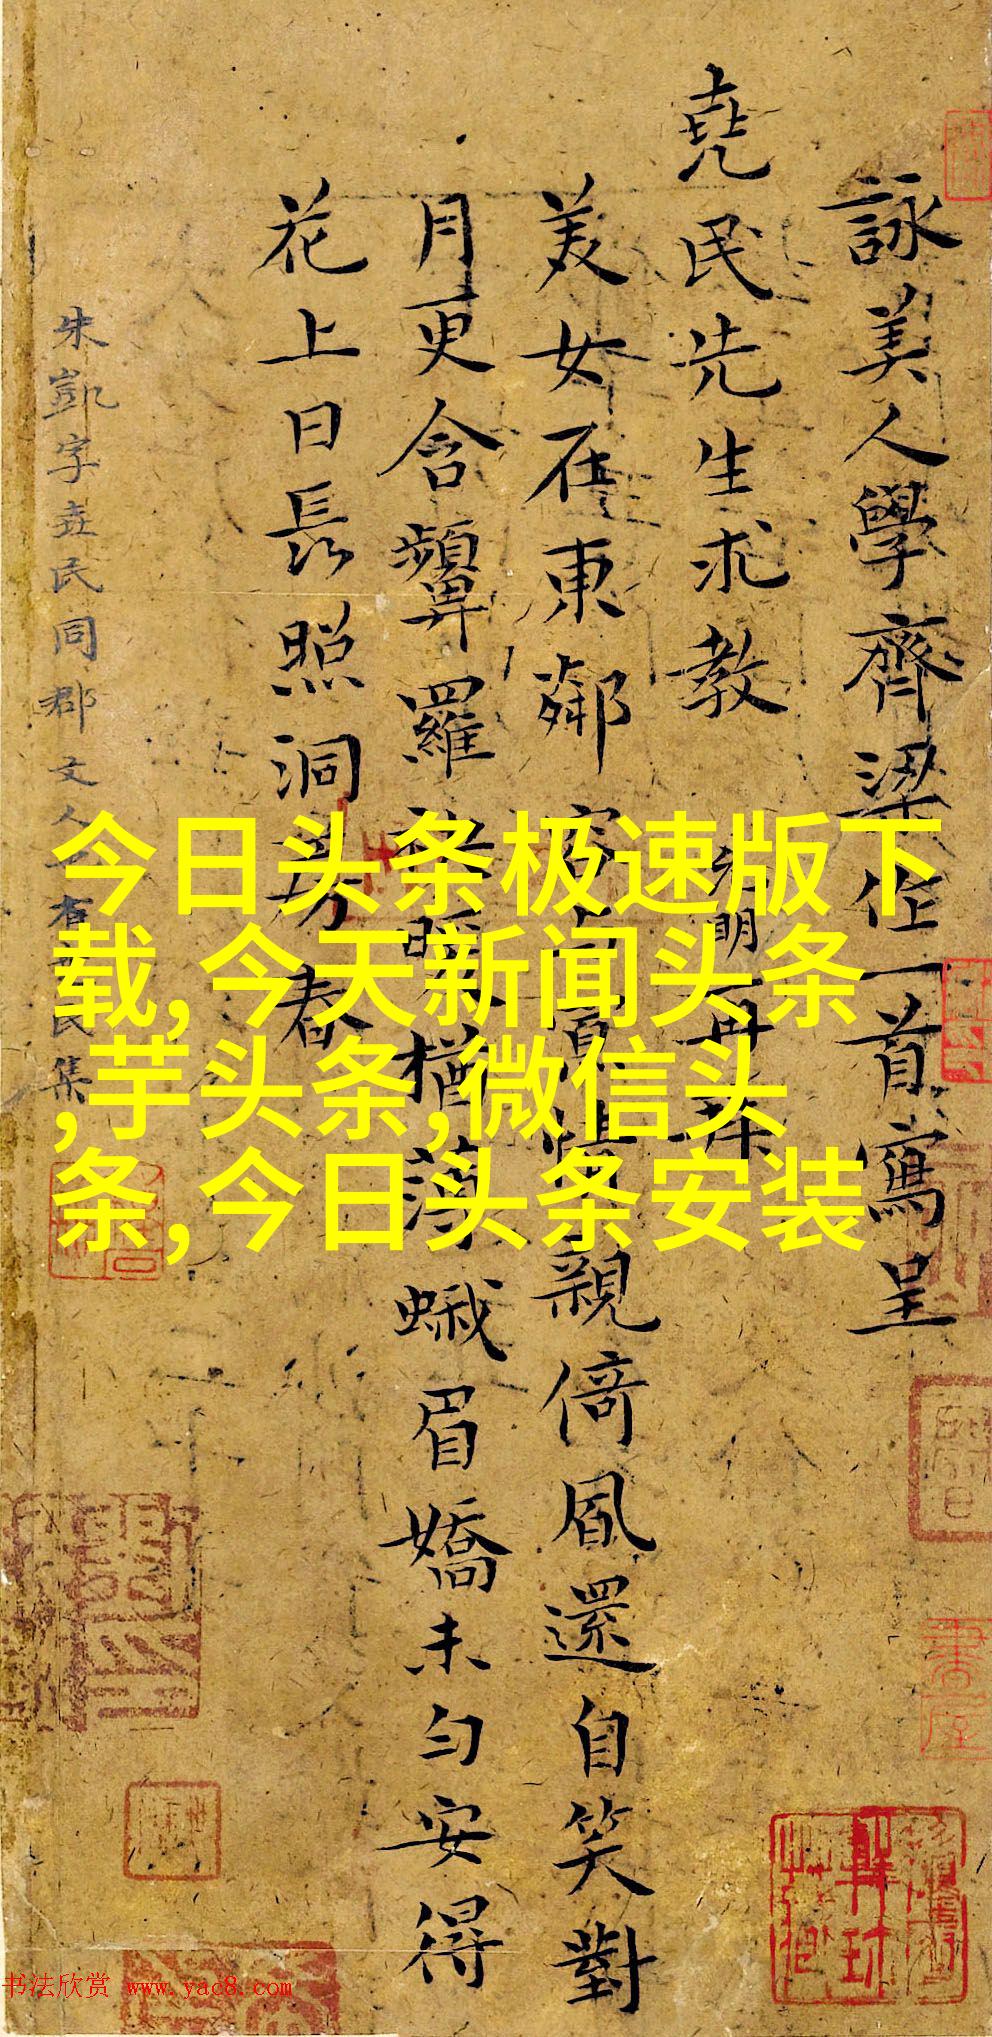 詠美人學齊梁作一首寫呈
堯民先生求教 明再拜
美女在東鄰容親倚風還自笑對
月更含顰羅猶薄蛾眉嬌未勻安得
花上日長照洞房春
朱凱字堯民同郡文人有民集
今日头条极速版下
载,今天新闻头条
,芋头条,微信头
条,今日头条安装
书法欣赏 www.yac8.com